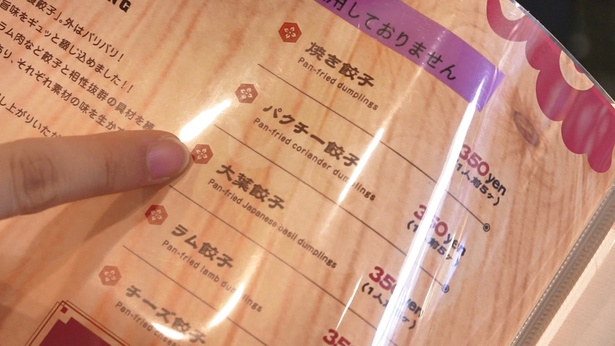 餃子」、外はパリパリ!
旨味をギュッと閉じ込めました!!
ラム肉など餃子と相性抜群の具材を
あり、それぞれ素材の味を生か
し上がりいただ
用しておりません
焼き餃子
Pan-fried dumplings
350yen
(1人前5ヶ)
パクチー餃子
Pan-fried coriander dumplings
350yen
(1人前5ヶ)
大葉餃子
Pan-fried Japanese basil dumplings
350yen
(1人前5ヶ)
ラム餃子
Pan-fried lamb dumplings
35
チーズ餃子
Pan-fried cheese